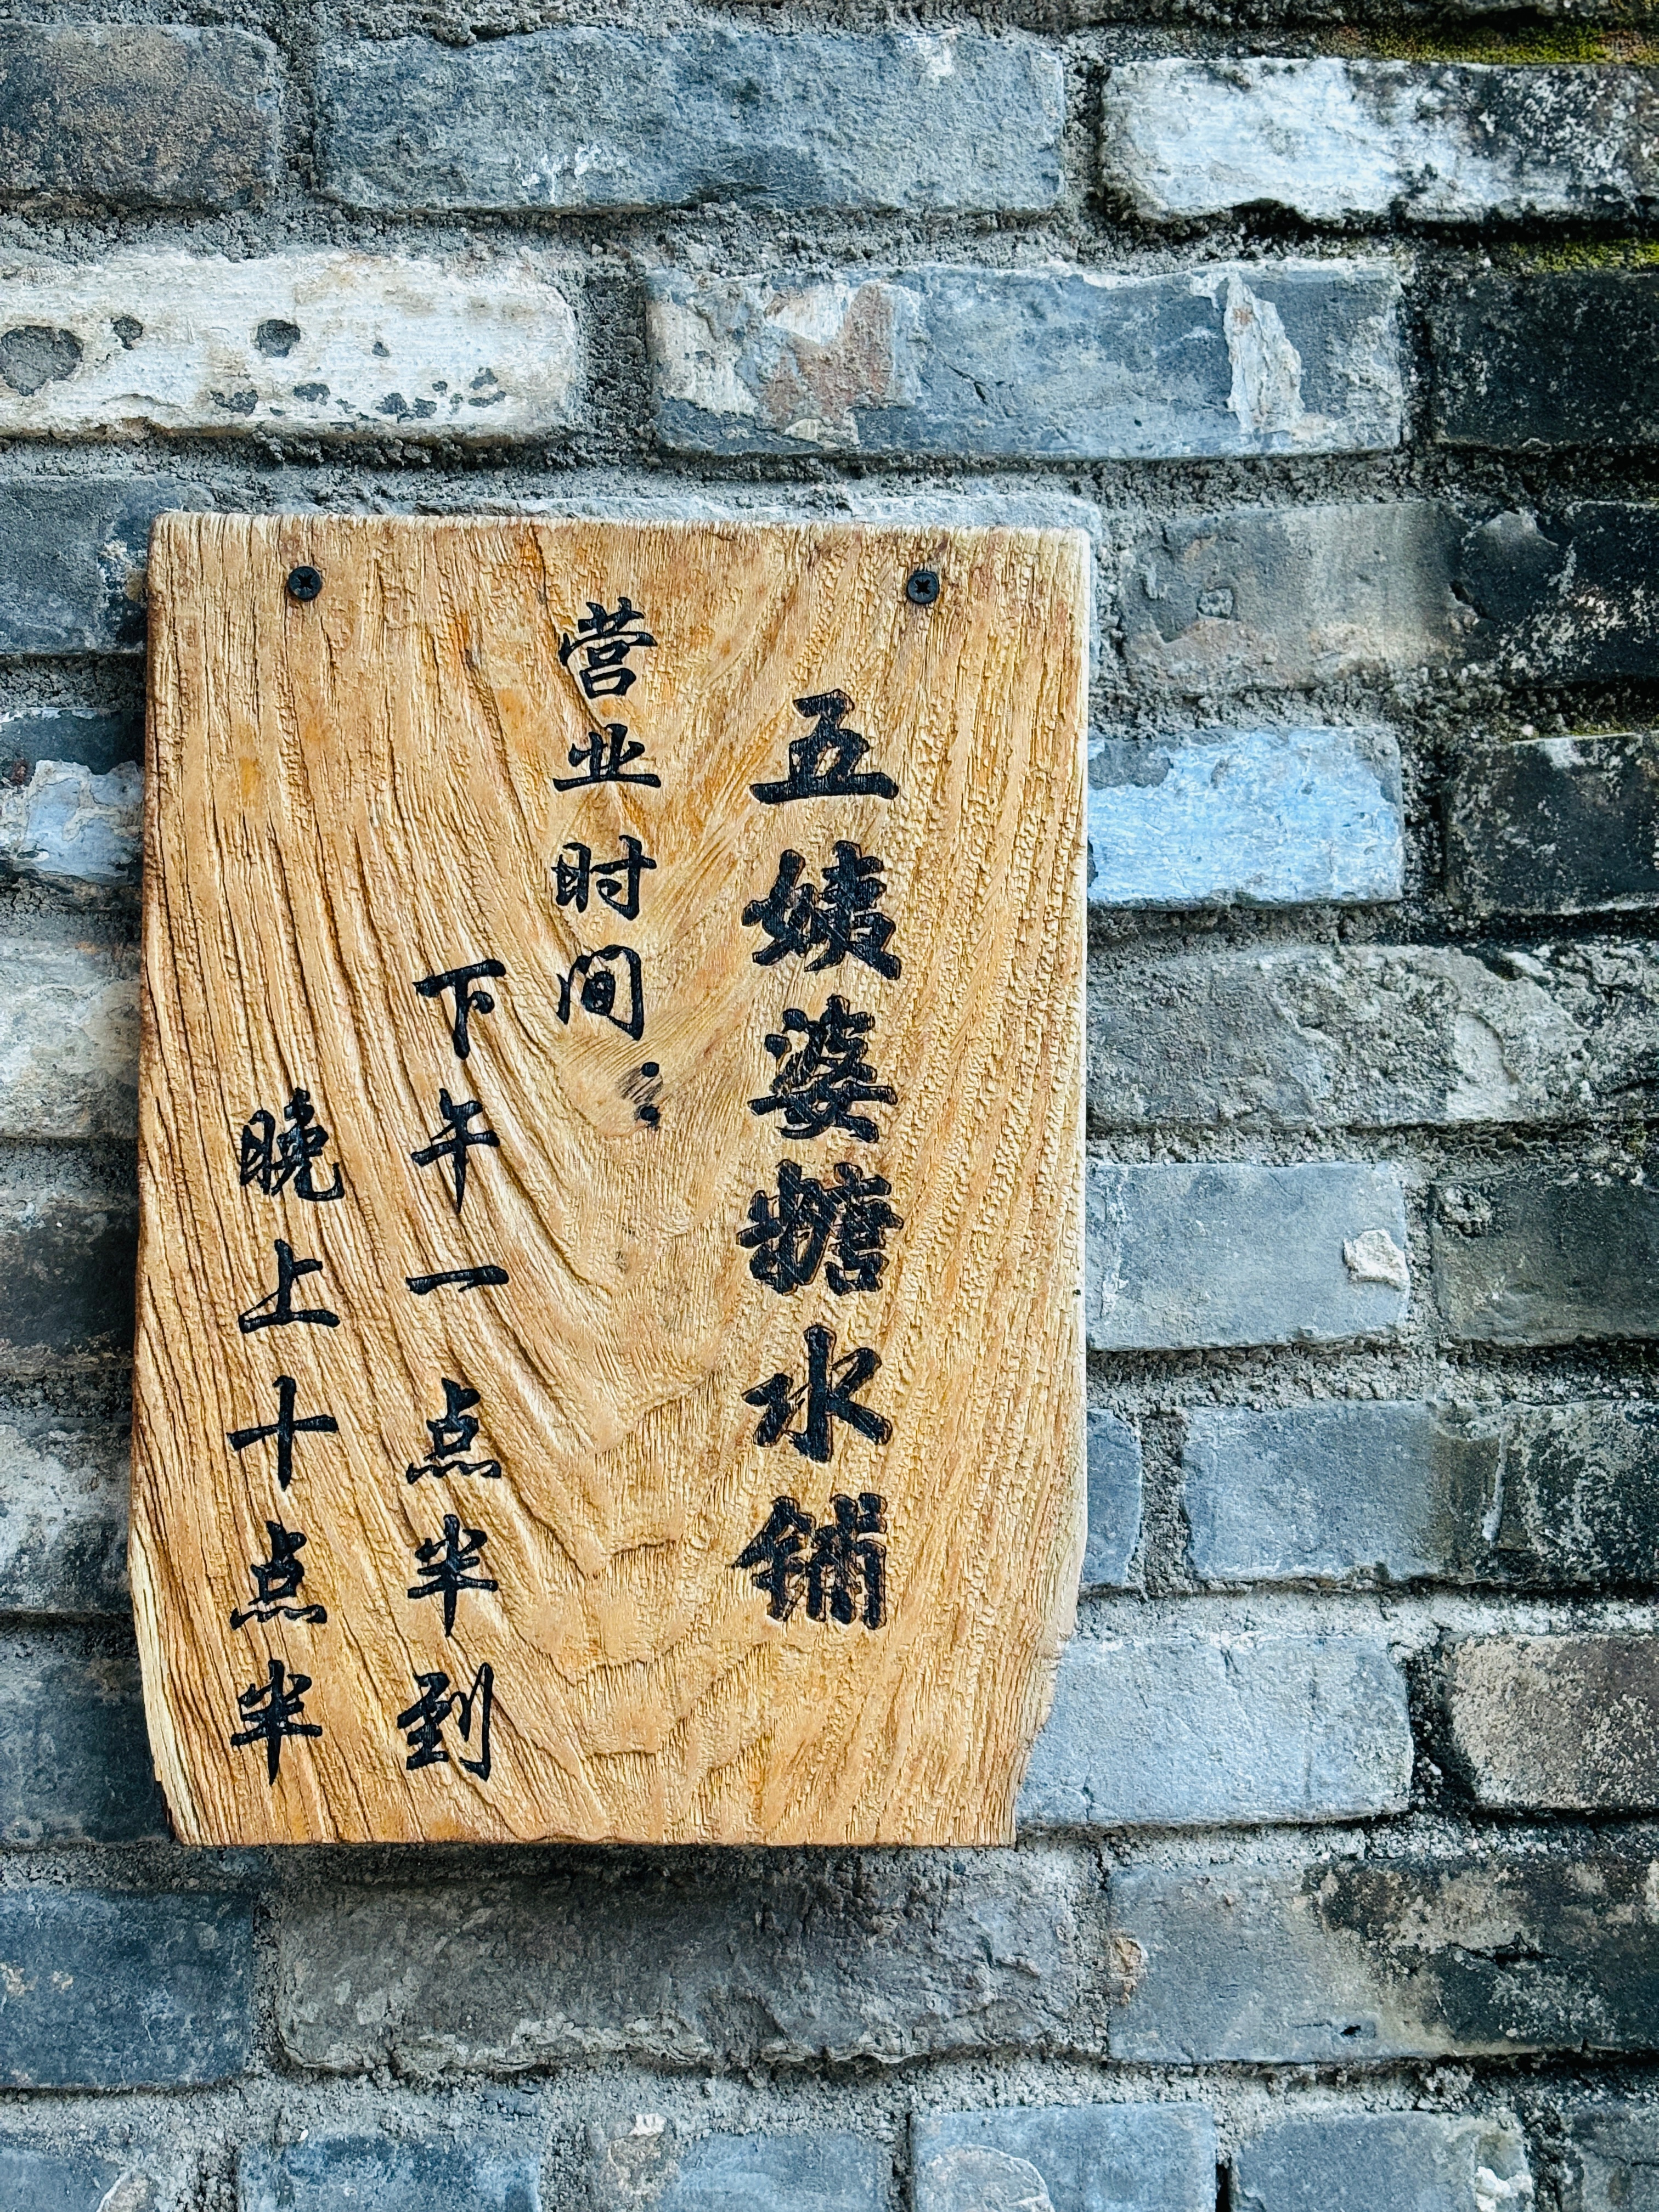 五姨婆糖水铺
营业时间：
下午一点半到
晚上十点半